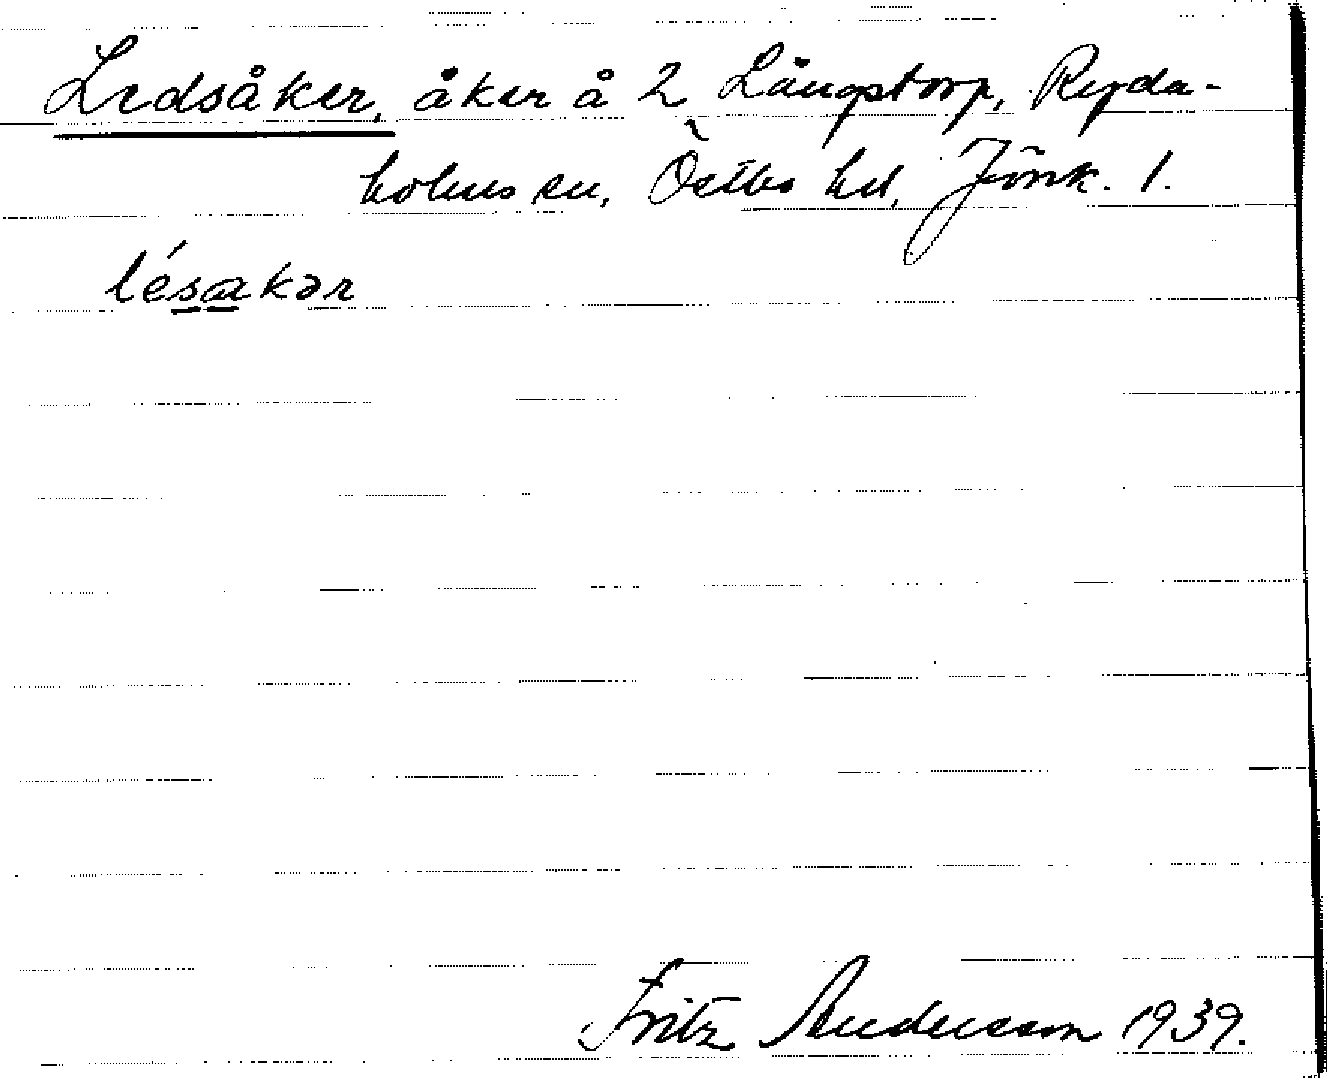 Ledsåker, åker å 2 Långstorp, Ryda-
holms sn, Östbo hd, Jönk. l.
lésakər
Fritz Andersson 1939.